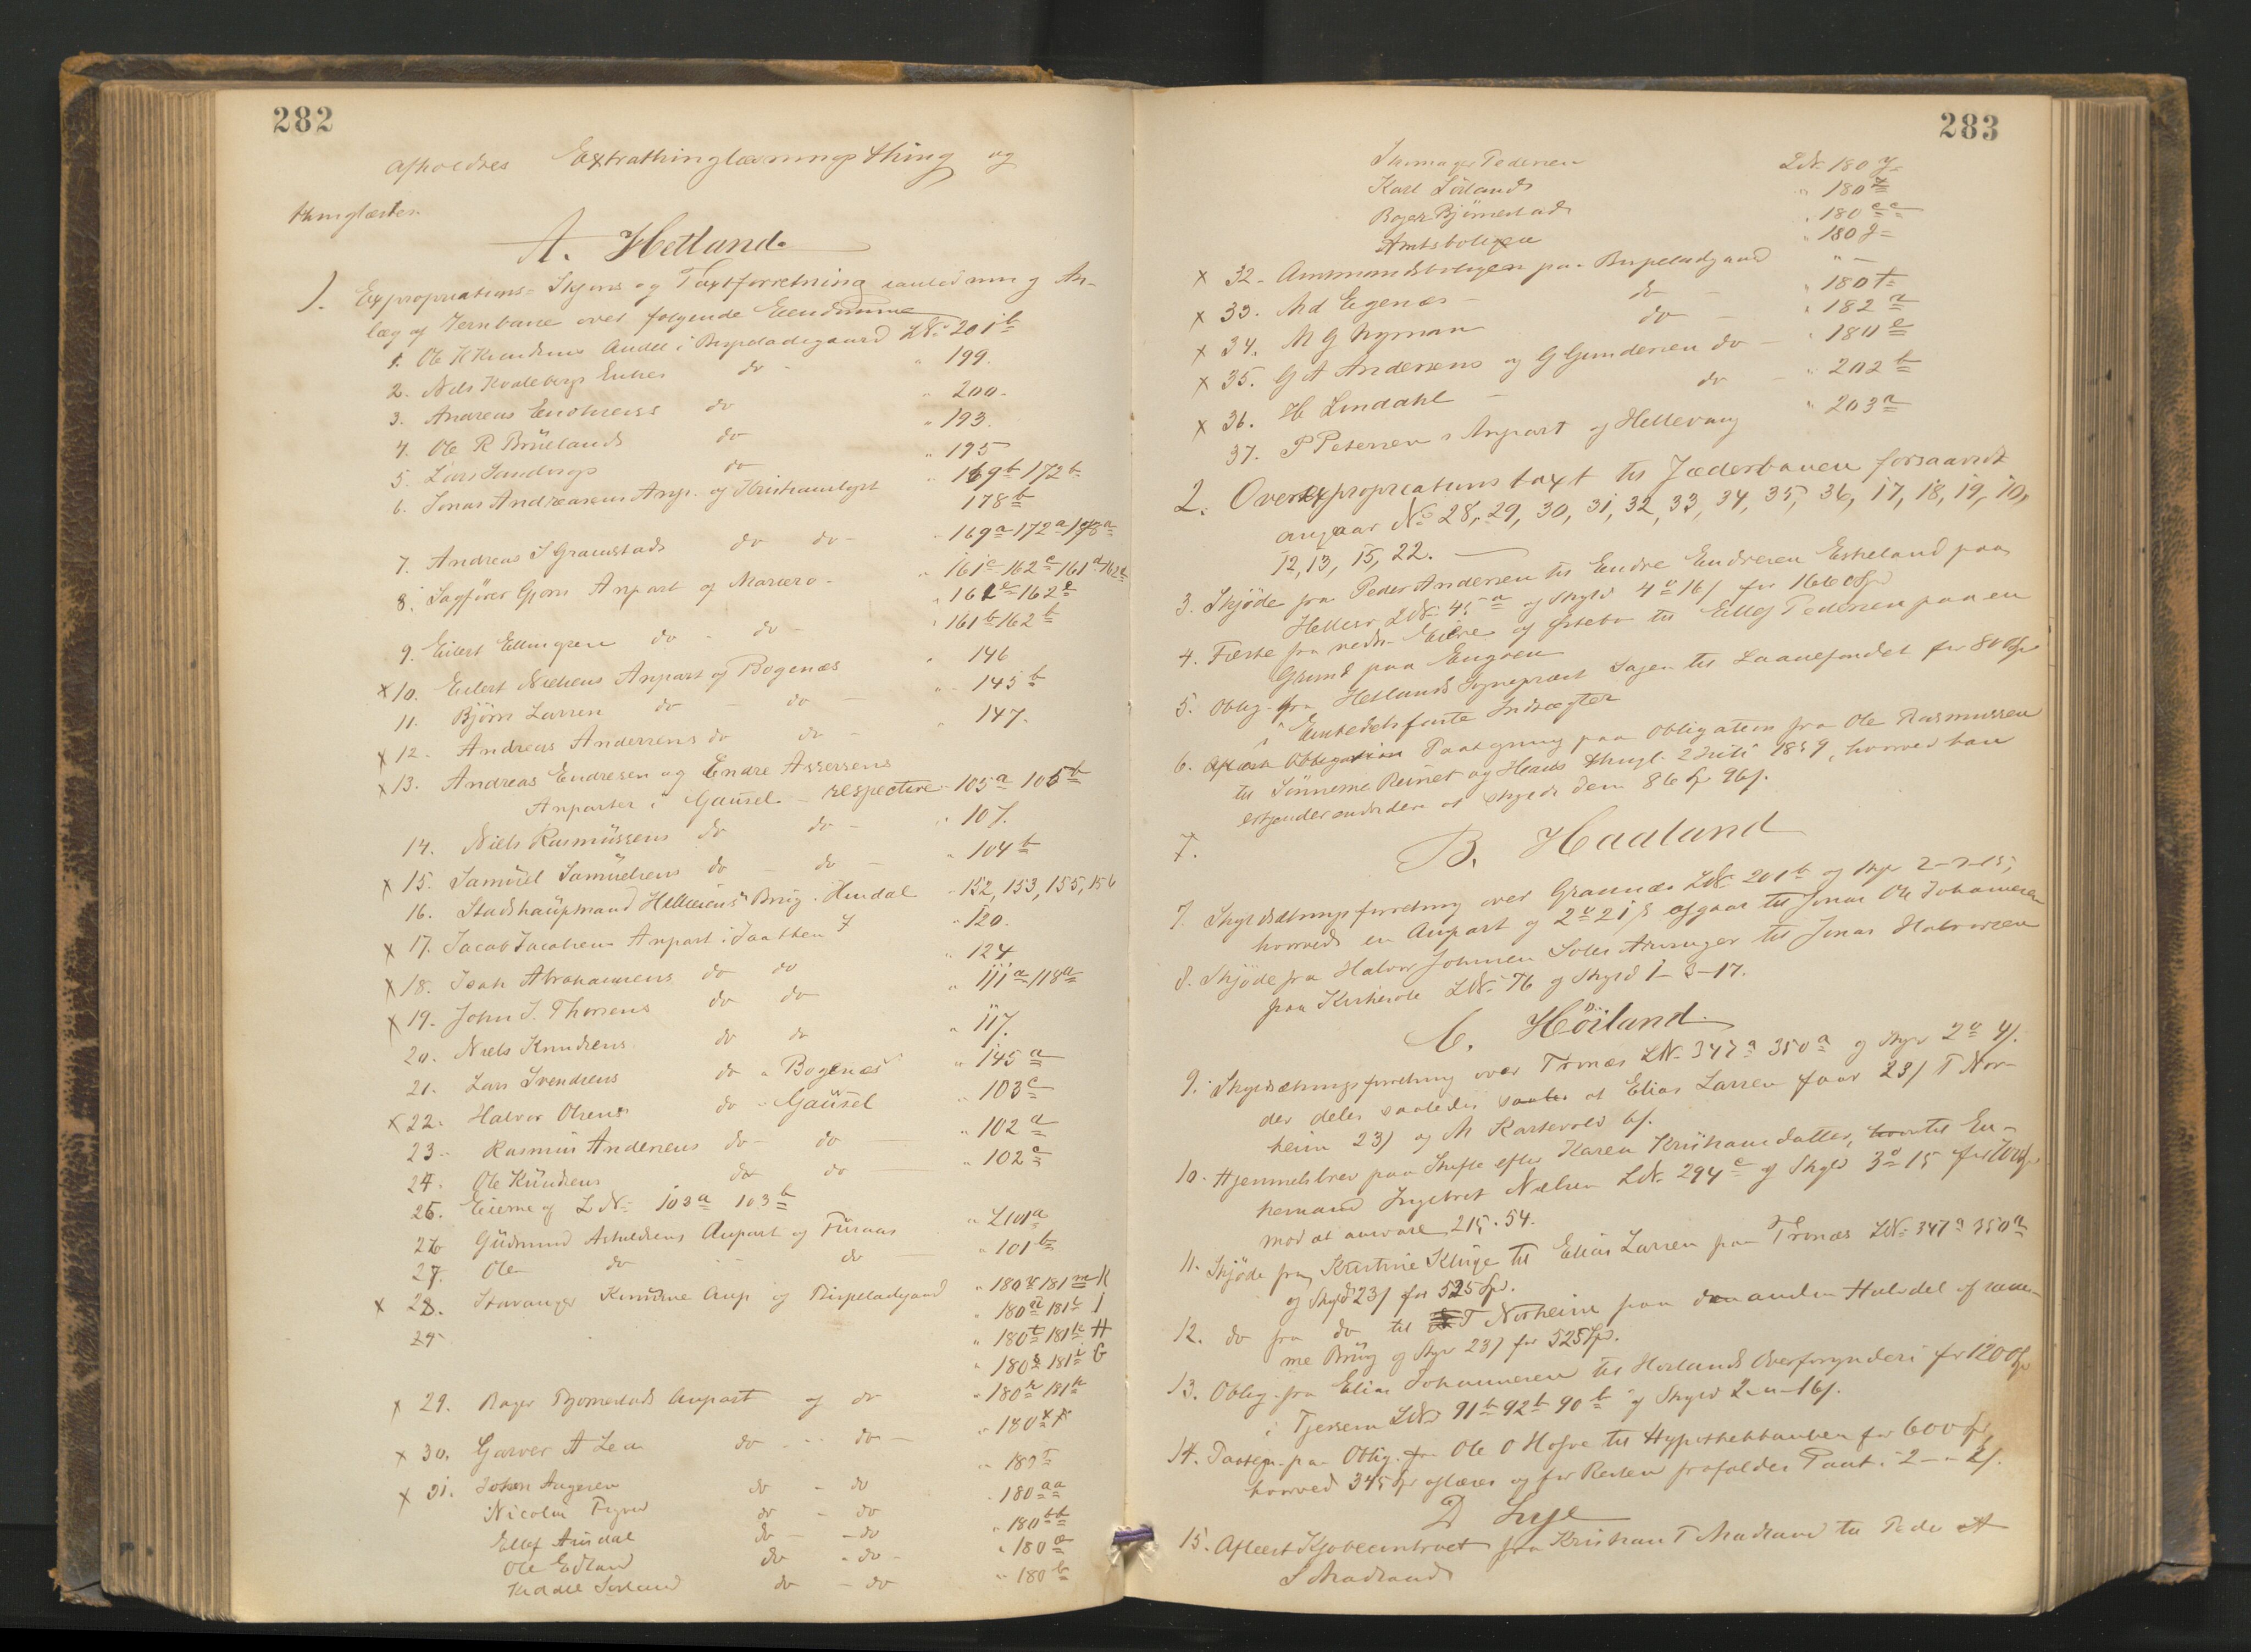 282
afholdtes Extrathinglæsnings thing og
thinglæstes
A. Hetland.
1. Expropriations- Skjøns og Taxtforretning anledning An-
læg af Jernbane over følgende Eiendomme
1. Ole K Knudsens Andel i Bispeladegaard LN: 201 b
2. Nils Kvalebergs Enkes do - " 199.
3. Andreas Enochsens do " 200.
4. Ole R Brüelands do " 193.
5. Lars Sandvigs do " 195
6. Jonas Andreasens Anp. og Kristianslyst " 169 b 172 b
178 b
7. Andreas S Gramstads do do - " 169 a 172 a 178 a
8. Sagfører Gjørs Anpart og Mariero - " 161 c 162 c 161 d 162 d
" 161 e 162 e
9. Eilert Ellingsen do - do - " 161 b 162 b
x 10. Eilert Nielsens Anpart og Bogenæs " 146
11. Bjørn Larsen do - do - " 145 b
x 12. Andreas Andersens do do - " 147.
x 13. Andreas Endresen og Endre Assersens
Anparter i Gausel - respective 105 a 105 b
14. Niels Rasmüssens do do - " 107.
x 15. Samüel Samüelsens do - do - " 104 b
16. Stadshaüptmand Helliesens Brüg i Hindal - 152, 153, 155, 156
x 17. Jacob Jacobsens Anpart i Jaatten 7 " 120.
x 18. Isak Abrahamsens do do " 124
x 19. John J. Thorsens do do " 111 a 118 a
20. Niels Knudsens do do " 117.
21. Lars Svendsens do " Bogenæs " 145 a
x 22. Halvor Olsens do " Gaüsel " 103 c
23. Rasmus Andersens do - do - " 102 d
24. Ole Knüdsens do do - " 102 a
25. Eierne af LN: 103 a 103 b
26 Güdmund Asbuldsens Anpart og Füraas " 101 a
27. Ole do - do - " 101 b
x 28. Stavanger Kommune Anp og Bispeladgaard " 180 v 181 m K
29 " 180 u 181 l I
" 180 t 181 k H
" 180 s 181 i G
x 29. Roger Bjørnestads Anpart og do " 180 r 181 h
x 30. Garver A Lea do - do - " 180 x
x 31. John Aagesen do - do " 180
Nicolai Figved do - do " 180 aa
Ellef Arisdal do - do " 180 bb
Ole Edland do - do - " 180 a
Keddel Sørland do - do " 180 b
283
Skomager Pedersen LN: 180 y
Karl Sørlands " 180 z
Boger Bjørnestads " 180 cc
Amtsboligen " 180 g
x 32. Ammandsboligen paa Bispeladgaard " -
x 33. Md Egenæs - do - " 180 t
x 34. M G Nyman do - " 182 a
x 35. G A Andersens og G Gundersen do - " 180 e
x 36. H Lindahl - do - " 202 b
37. P Petersen s Anpart og Hellevang " 203 a
2. Overexpropriationstaxt til Jæderbanen forsaavidt
angaar No 28, 29, 30, 31, 32, 33, 34, 35, 36, 17, 18, 19, 10,
12, 13, 15, 22. -
3. Skjøde fra Peder Andersen til Endre Endresen Eskeland paa
Hellesø LN: 45 a og Skyld 4 o 16 / for 1660 Spd
4. Fæste fra nedre Eiere og Østebø til Ellef Pedersen paa en
Grund paa Engøen
5. Oblig. fra Hetlands Sognepræst Sagen til Laanefondet for 800 Spd
i Embedets faste Indtægter
6. Aflæst Obligation Paategning paa Obligation fra Ole Rasmussen
til Jünneme Reinet og Heraas thingl. 2 Juli 1859, hvorved han
erkjender endvidere at skylde dem 86 Spd 96 s.
7. B. Haaland
7. Skyldsætningsforretning over Grannæs LN: 201 b og Skyr 2-2-15,
hvorved en Anpart og 2 o 21 s afgaar til Jonas Ole Johannesen
8. Skjøde fra Halvor Johnsen Soles Arvinger til Jonas Halvorsen
paa Kirkesole LN: 76 og Skyld 1-3-17.
C. Höiland.
9. Skyldsætningsforretning over Tronæs LN: 347 a 350 a og Skyr 2 o 4/.
der deles saaledes at Elias Larsen faar 23/ T Nor-
heim 23/ og M Kartevold 6/.
10. Hjemmelsbrev paa Skifte efter Karen Kristiansdatter, til En-
kemand Ingebret Nielsen LN: 294 c og Skyld 3 o 15
mod at ansvare 215.54.
11. Skjøde fra Kristine Kluge til Elias Larsen paa Tronæs LN: 347 a 350 a
og Skyld 23/ for 525 Spd.
12. do fra do til T Norheim paa den anden Halvdel af sam-
me Brüg og Skyr 23/ for 525 Spd.
13. Oblig. fra Elias Johannesen til Høilands Overformynderi for 120 Spd
i Tjessem LNo 91 b 92 b 90 b og Skyld 2-o-16/.
14. Paategn. paa Oblig. fra Ole O Hofve til Hypothekbanken for 600 Spd,
hvorved 345 Spd aflæses og for Resten frafaldes Pant i 2 - - 2/.
D Lye
15. Aflæst Kjøbecontract fra Kristian T Madland til Peder A
S Madland